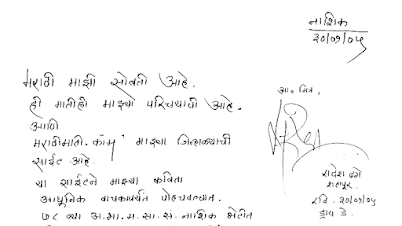 नाशिक
२०/०१/०५
मराठी माझी सोबती आहे.
ही मातीही माझ्या परिचयाची आहे.
आणि
मराठीमाती. कॉम् माझ्या जिव्हाळ्याची
साईट आहे
या साईटने माझ्या कविता
आधुनिक वाचकापर्यंत पोहचवल्यात.
७८ व्या अ.भा.म.सा.सं. नाशिक भेटीत
आ. मित्र.
शहापूर.
रवि. २०/०१/०५